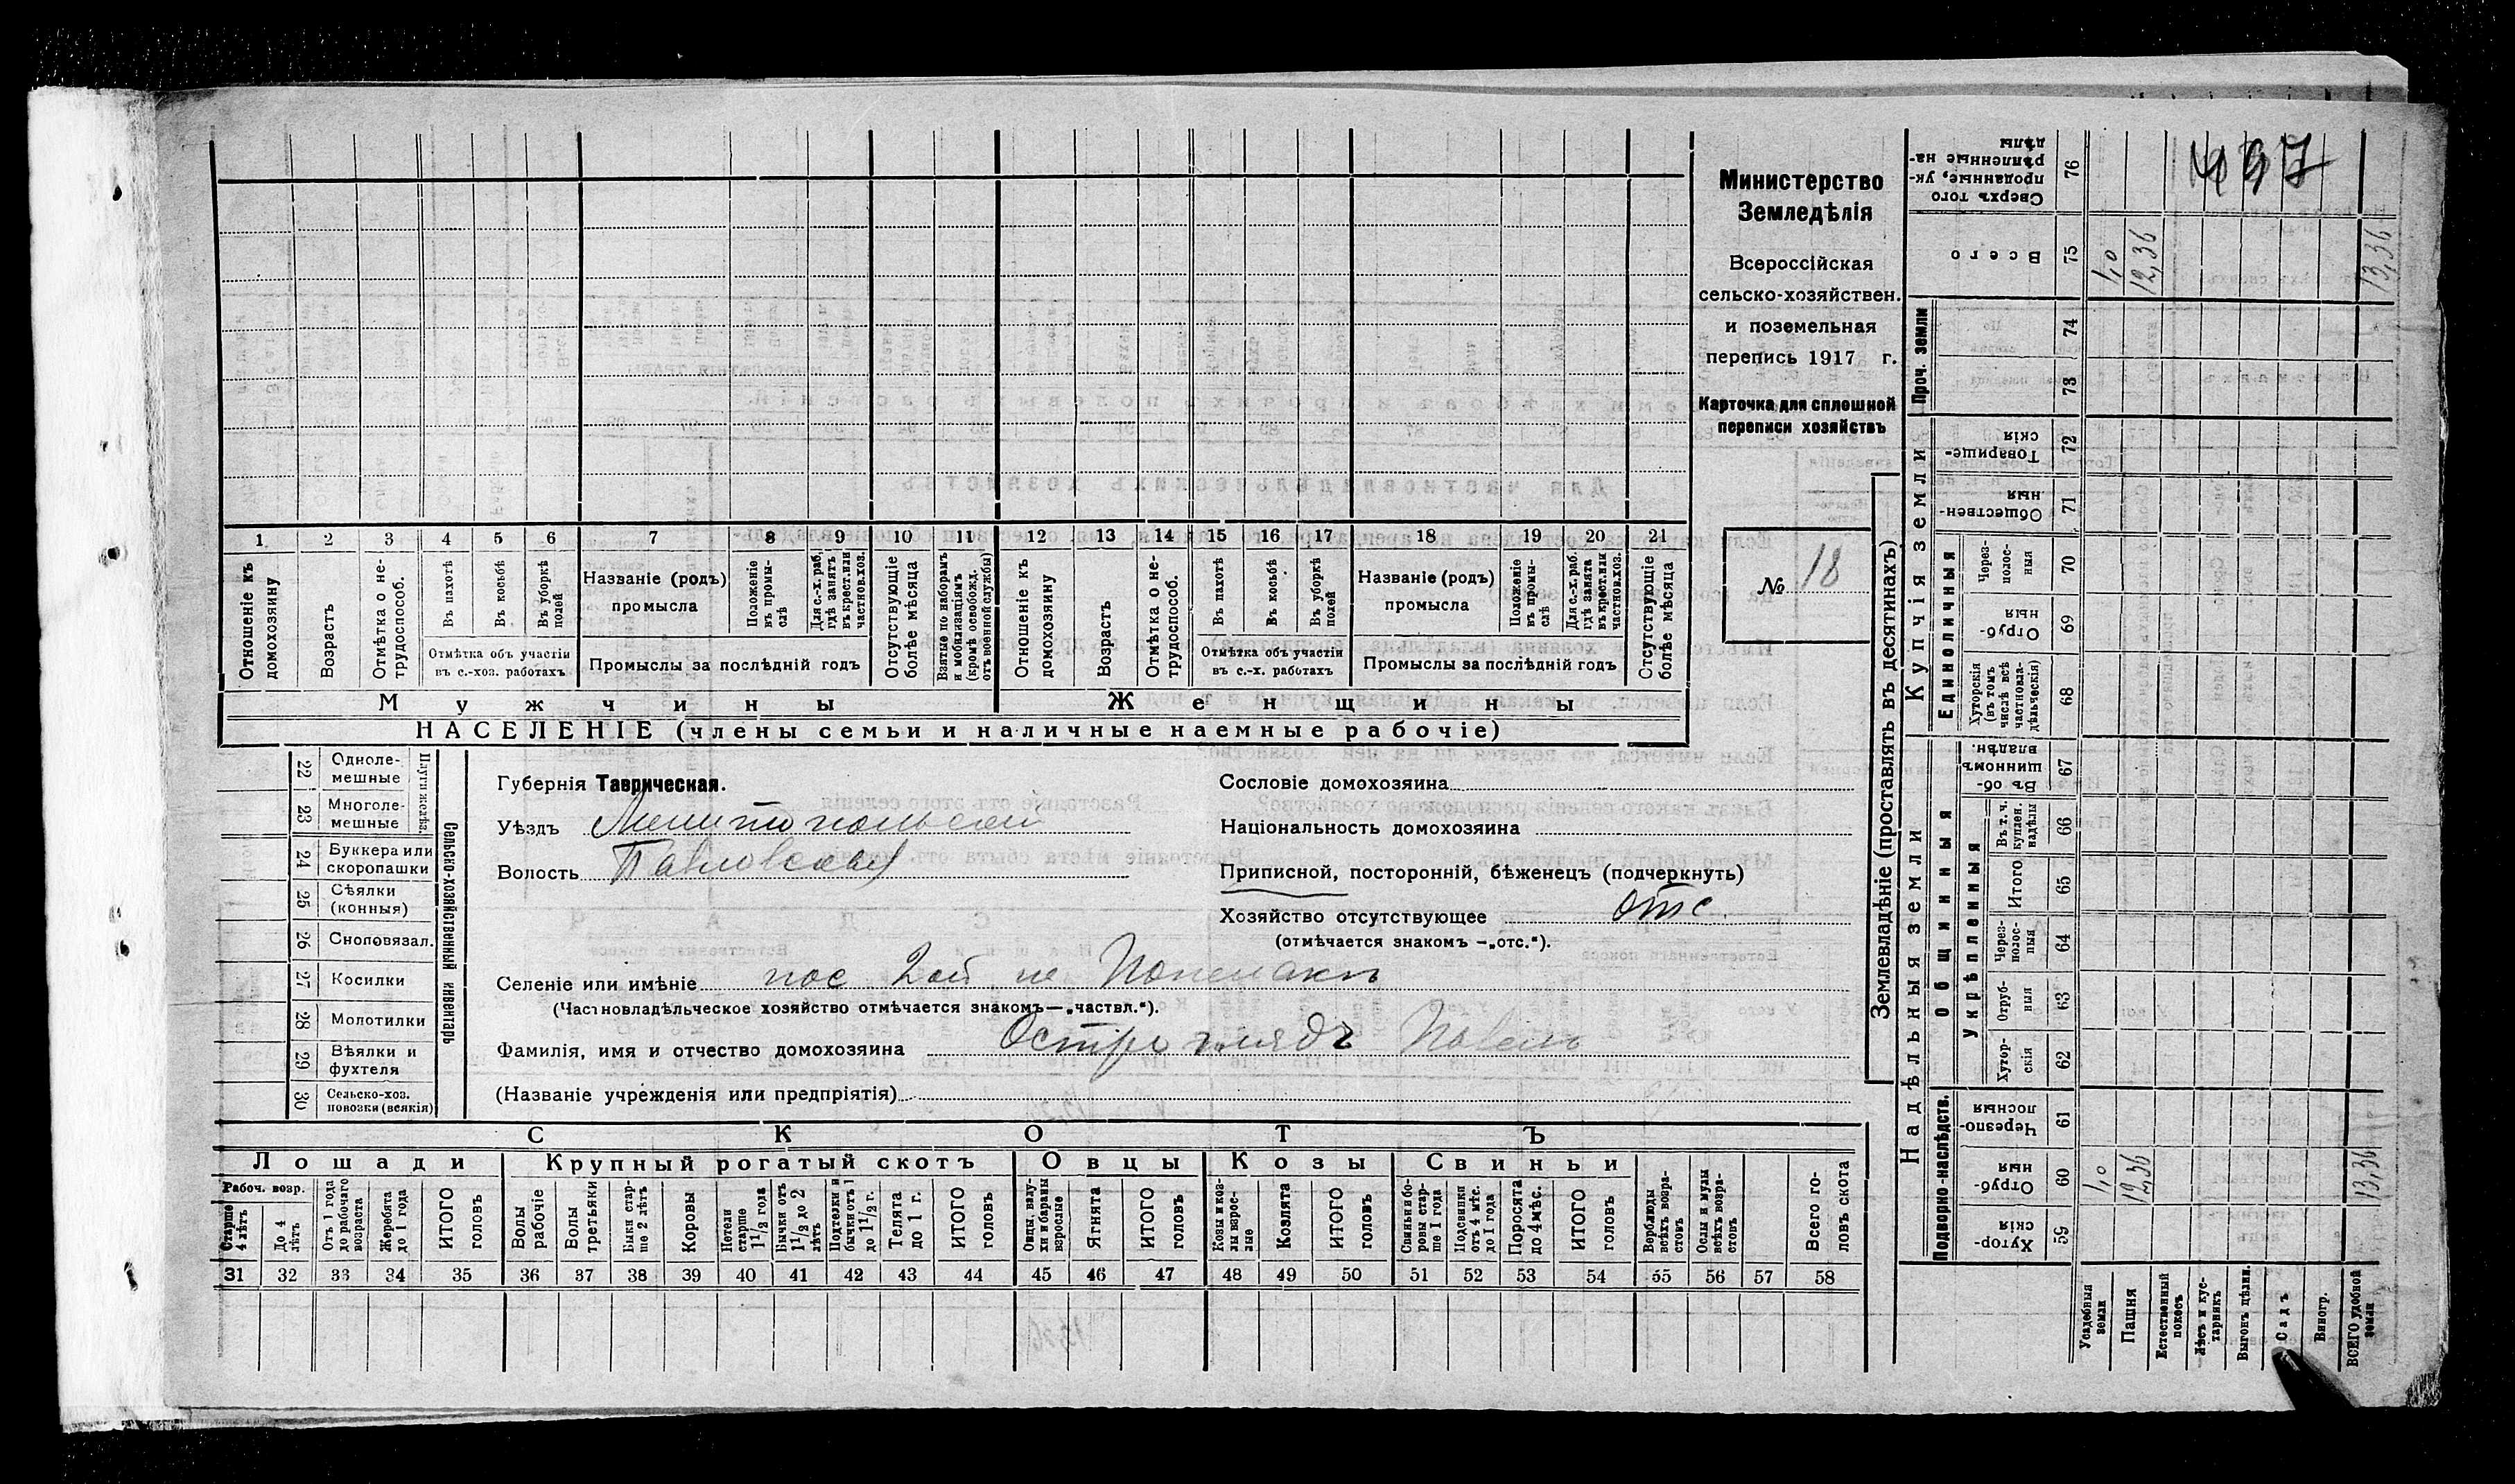 Министерство
Земледѣлія
Всероссійская
сельско-хозяйствен.
и поземельная
перепись 1917 г.
Карточка для сплошной
переписи хозяйствъ
№ 18
1 2 3 4 5 6 7 8 9 10 11 12 13 14 15 16 17 18 19 20 21
Отношеніе къ домохозяину
Возрастъ
Отмѣтка о не-трудоспособ.
Въ пахотѣ
Въ косьбѣ
Въ уборкѣ полей
Отмѣтка объ участіи въ с.-хоз. работахъ
Названіе (родъ) промысла
Положеніе въ промы-слѣ
Для с.-х. раб. гдѣ занятъ въ крест. или частнов. хоз.
Промыслы за послѣдній годъ
Отсутствующіе болѣе мѣсяца
Взятые по наборамъ и мобилизаціямъ (кромѣ освобожд. отъ военной службы)
Отношеніе къ домохозяину
Возрастъ
Отмѣтка о не-трудоспособ.
Въ пахотѣ
Въ косьбѣ
Въ уборкѣ полей
Отмѣтка объ участіи въ с.-х. работахъ
Названіе (родъ) промысла
Положеніе въ промы-слѣ
Для с.-х. раб. гдѣ занята въ крест. или частнов. хоз.
Промыслы за послѣдній годъ
Отсутствующіе болѣе мѣсяца
Мужчины
Женщины
НАСЕЛЕНІЕ (члены семьи и наличные наемные рабочіе)
22 Одноле-мешные
23 Многоле-мешные
24 Буккера или скоропашки
25 Сѣялки (конныя)
26 Сноповязал.
27 Косилки
28 Молотилки
29 Вѣялки и фухтеля
30 Сельско-хоз. повозки (всякія)
Сельско-хозяйственный инвентарь
Губернія Таврическая.
Уѣздъ Мелитопольскій
Волость Павловская
Сословіе домохозяина
Національность домохозяина
Приписной, посторонній, бѣженецъ (подчеркнуть)
Хозяйство отсутствующее отс.
(отмѣчается знакомъ —„отс.“).
Селеніе или имѣніе пос 2ой
(Частновладѣльческое хозяйство отмѣчается знакомъ—„частвл.“).
Фамилія, имя и отчество домохозяина Остроглядъ Павелъ
(Названіе учрежденія или предпріятія)
СКОТЪ
Лошади
Крупный рогатый скотъ
Овцы
Козы
Свиньи
Рабоч. возр.
Старше 4 лѣтъ
До 4 лѣтъ
Отъ 1 года до рабочаго возраста
Жеребята до 1 года
ИТОГО головъ
Волы рабочіе
Волы третьяки
Быки стар-ше 2 лѣтъ
Коровы
Нетели старше 1 1/2 года
Бычки отъ 1 1/2 до 2 лѣтъ
Подтелки и бычки отъ 1 до 1 1/2 г.
Телята до 1 г.
ИТОГО головъ
Овцы, валу-хи и бараны взрослые
Ягнята
ИТОГО головъ
Козы и коз-лы взрос-лые
Козлята
ИТОГО головъ
Свиньи и бо-ровы стар-ше 1 года
Подсвинки отъ 4 мѣс. до 1 года
Поросята до 4 мѣс.
ИТОГО головъ
Верблюды всѣхъ возра-стовъ
Ослы и мулы всѣхъ возра-стовъ
Всего го-ловъ скота
31 32 33 34 35 36 37 38 39 40 41 42 43 44 45 46 47 48 49 50 51 52 53 54 55 56 57 58
Землевладѣніе (проставлять въ десятинахъ)
Надѣльныя земли
Купчія земли
Проч. земли
Подворно-наслѣдств.
Общинныя
Укрѣпленныя
Единоличныя
Сверхъ того проданные, ук-рѣпленные на-дѣлы 76
Всего 75 1,0 12,36 13,36
74
73
Товарище-скія 72
Обществен-ныя 71
Через-полос-ныя 70
Отруб-ныя 69
Хуторскія (въ томъ числѣ всѣ частновла-дѣльческія) 68
Въ об-щинномъ владѣн. 67
Въ т. ч. куплен. надѣлы 66
Итого 65
Через-полос-ныя 64
Отруб-ныя 63
Хутор-скія 62
Черезпо-лосныя 61
Отруб-ныя 60 1,0 12,36 13,36
Хутор-скія 59
Усадебныя земли
Пашня
Естественный покосъ
Лѣсъ и кус-тарникъ
Выгонъ цѣлин.
Садъ
Виногр.
ВСЕГО удобной земли